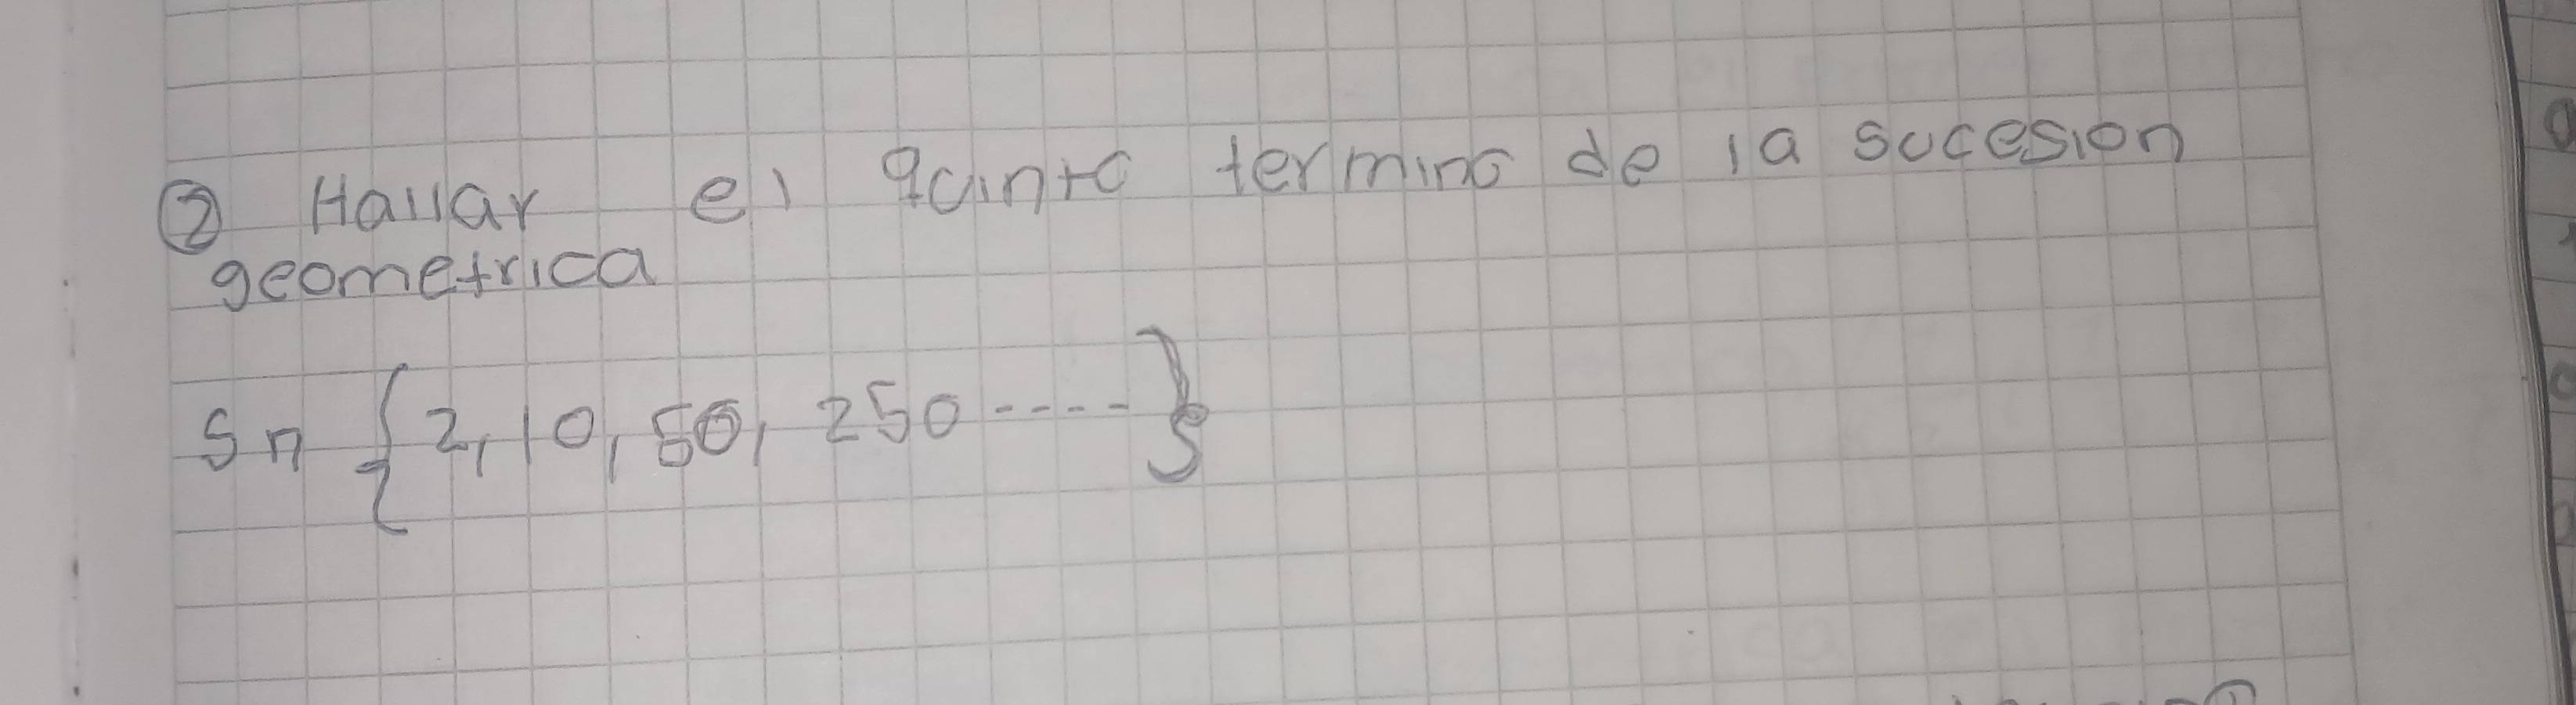 ② Hallar el quinto termino de la sucesion
geometrica
Sn {2, 10, 50, 250 ---- }